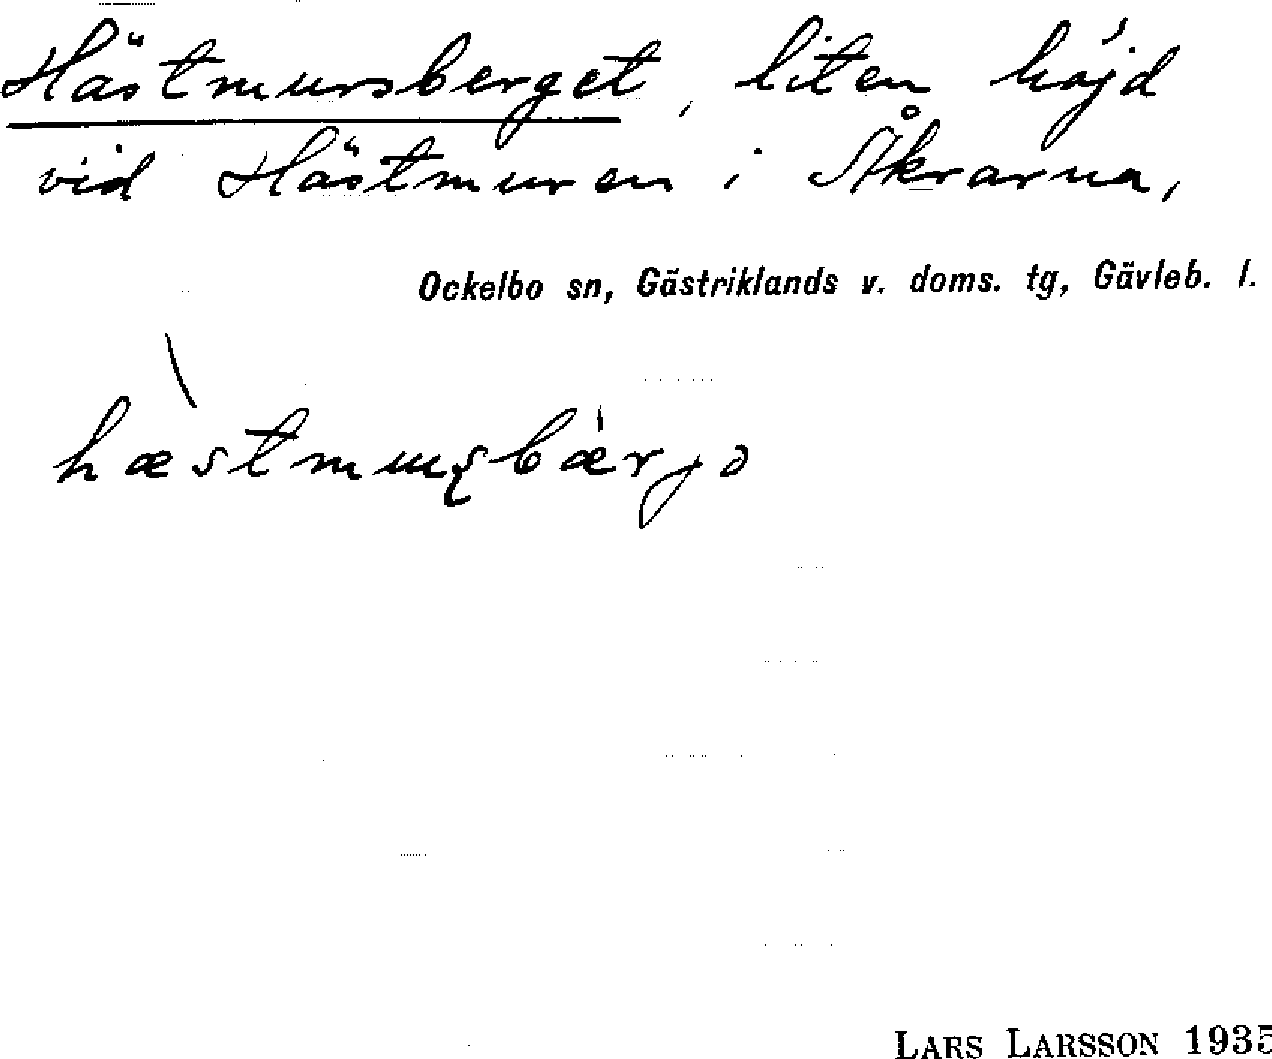 Hästmursberget, liten höjd
vid Hästmuren i Åkrarna,
Ockelbo sn, Gästriklands v. doms. tg, Gävleb. l.
hæstmuʂbærjə
LARS LARSSON 1935